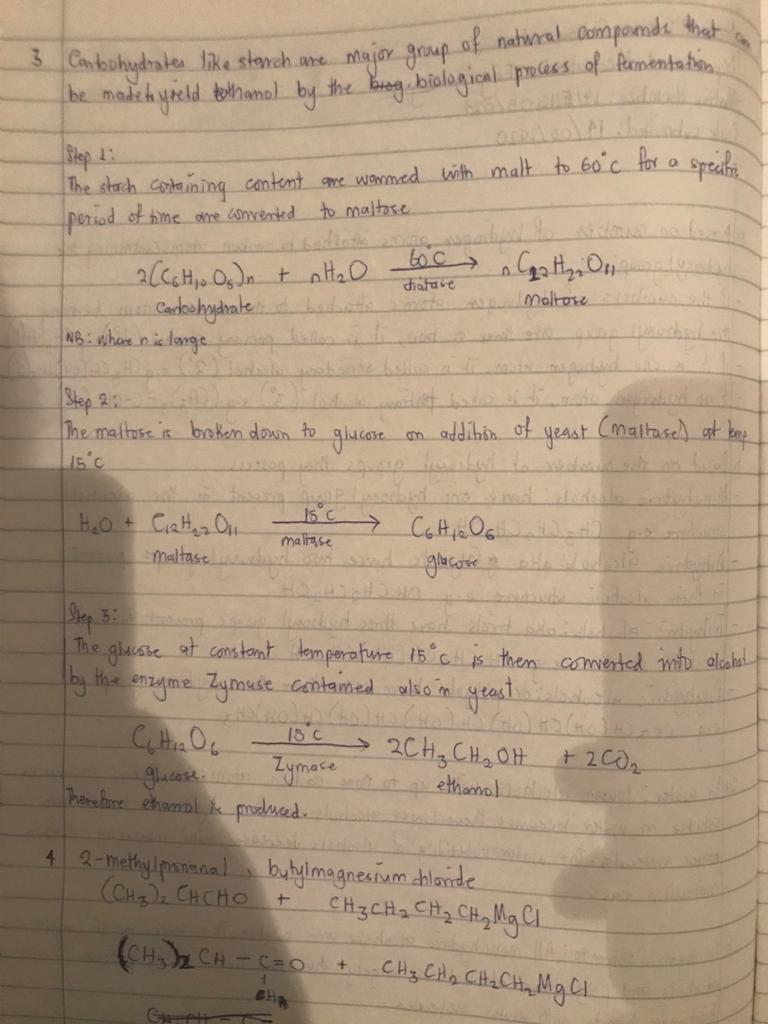 3 Carbohydrates like starch are major group of natural compounds that can
be made to yield ethanol by the biological process of fermentation
Step 1:
The stach containing content are warmed with malt to 60°C for a specific
period of time are converted to maltose
2(C6H10O5)n + nH2O 60°C → nC12H22O11
diatase
Carbohydrate maltose
NB: where n is large
Step 2:
The maltose is broken down to glucose on addition of yeast (maltase) at temp
15°C
H2O + C12H22O11 15°C → C6H12O6
maltase
maltase glucose
Step 3:
The glucose at constant temperature 15°C is then converted into alcohol
by the enzyme Zymase contained also in yeast
C6H12O6 15°C → 2CH3CH2OH + 2CO2
Zymase
glucose. ethanol
Therefore ethanol is produced.
4 2-methylpronanal, butylmagnesium chloride
(CH3)2 CHCHO + CH3CH2CH2CH2MgCl
(CH3)2 CH – C=O + CH3CH2CH2CH2MgCl